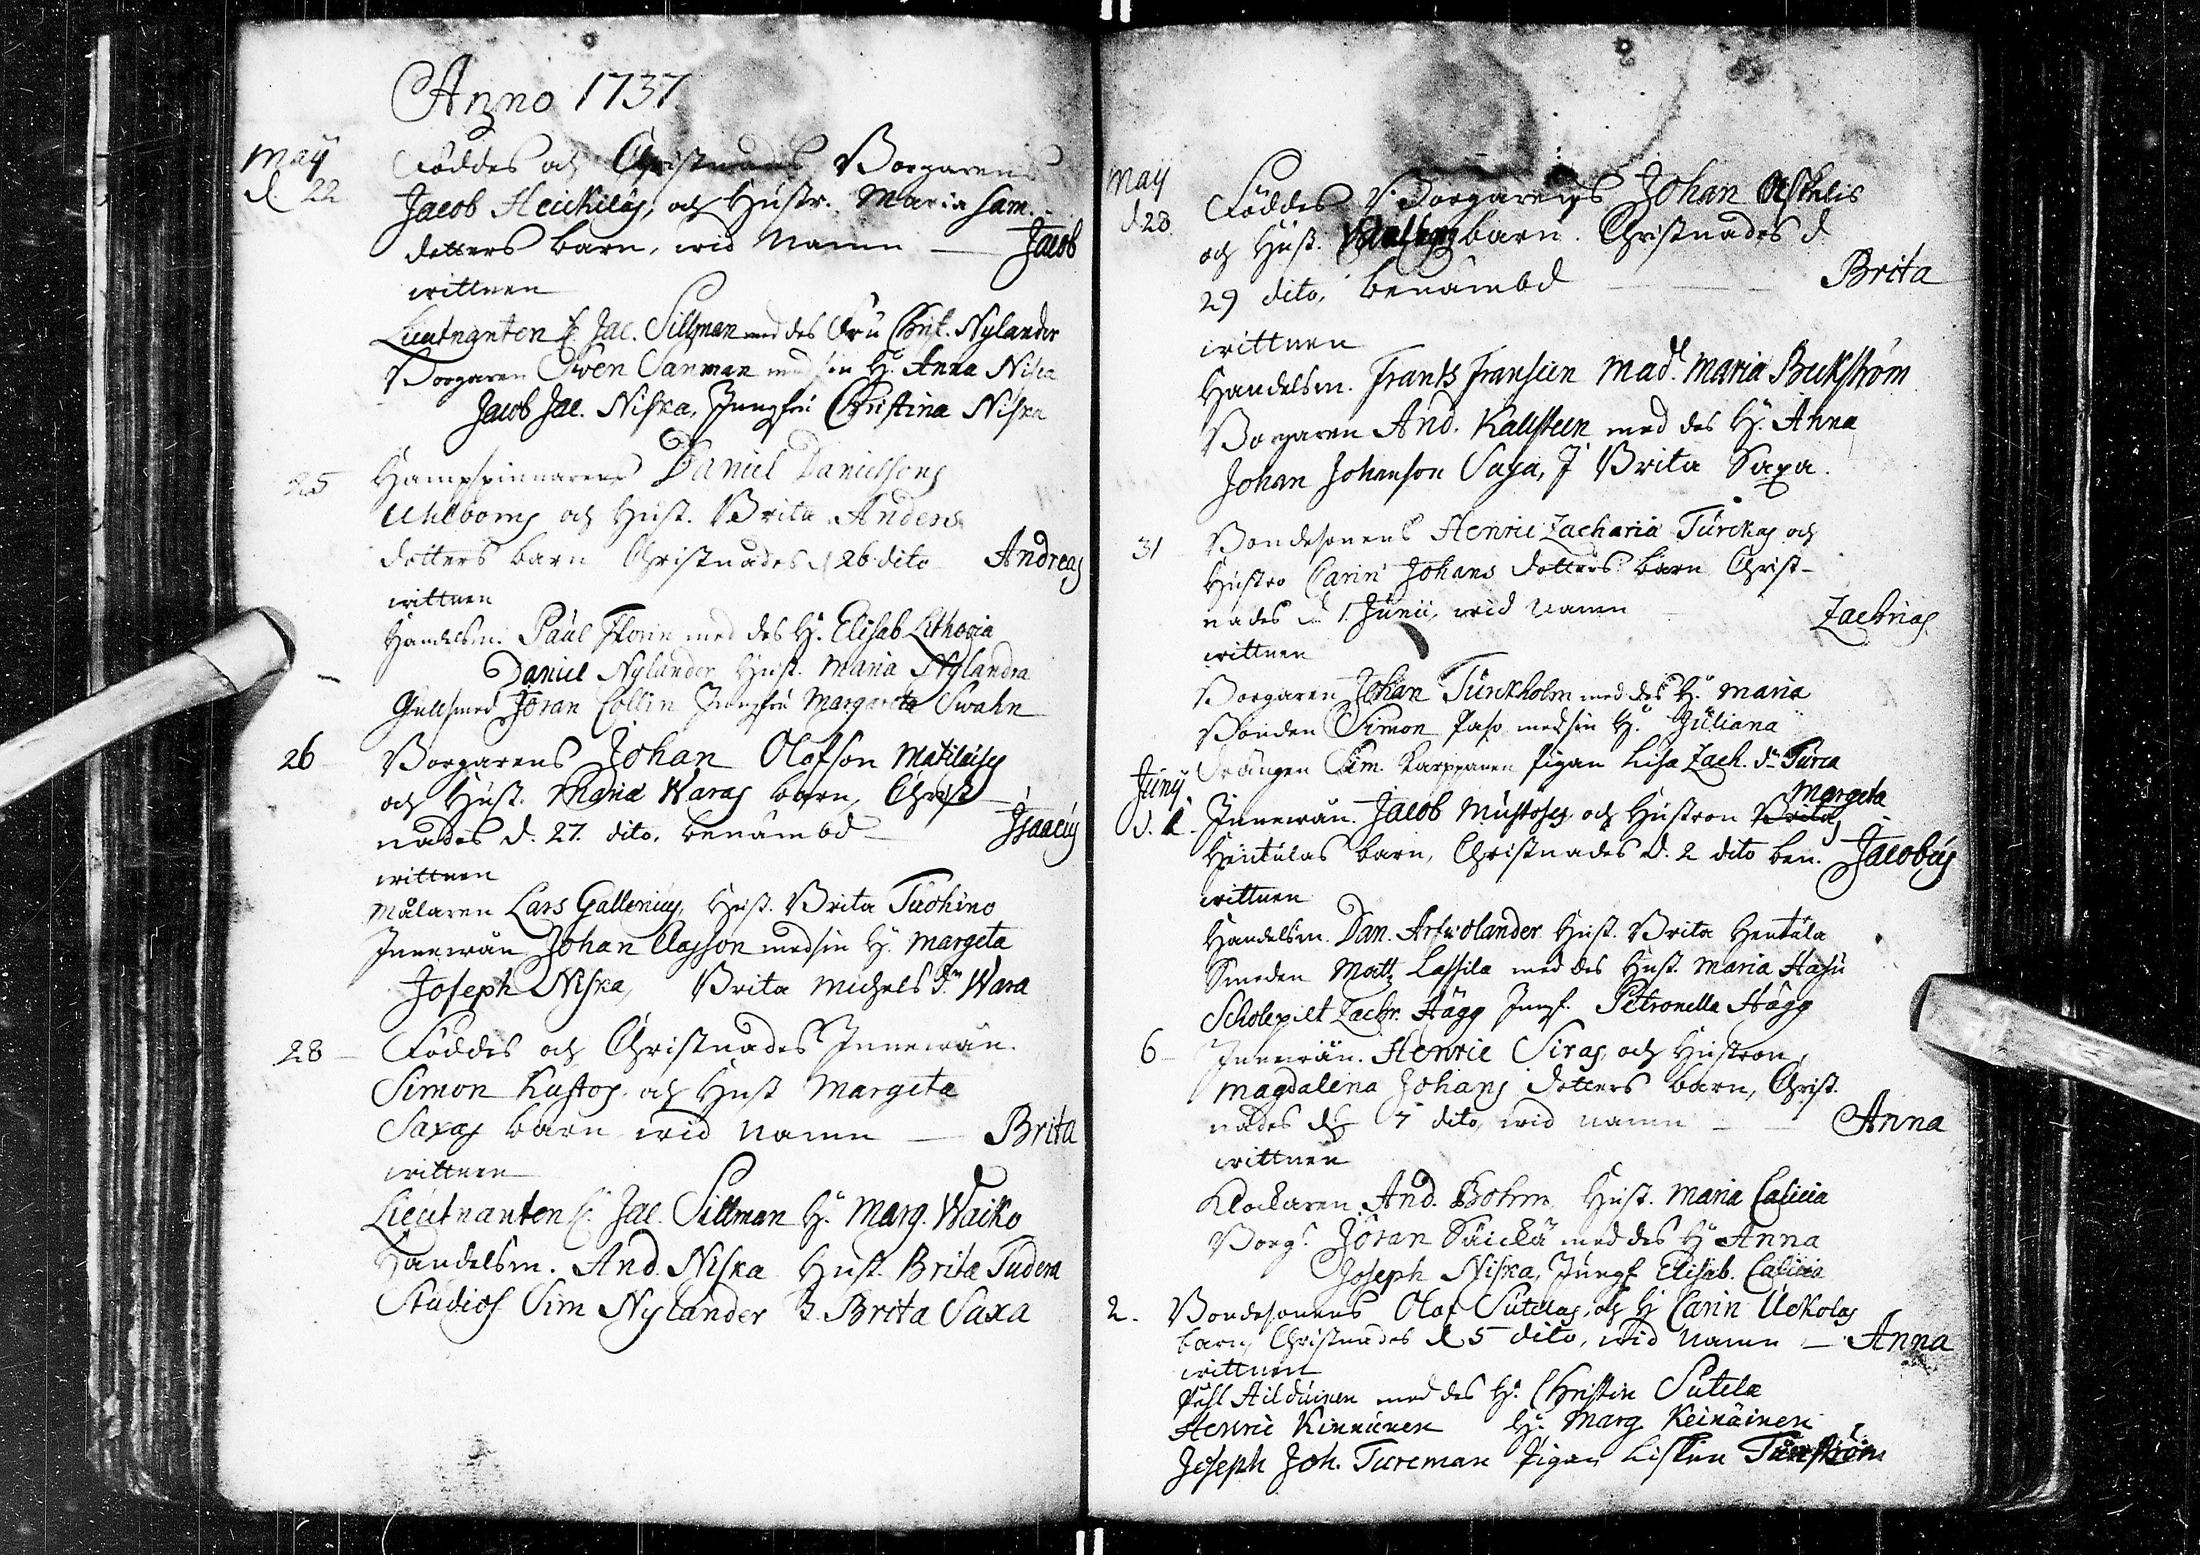 Anno 1737
Maÿ Föddes och Christnades Borgarens
d. 22 Jacob Heickilas, och Hustr. Maria Sam.
dotters barn, wid Namn — Jacob
wittnen
Lieutnanten H. Jac. Sillman med des Fru Christ. Nylander
Borgaren Swen Sanman med sin H. Anna Niska
Jacob Jac. Niska, Jungfru Christina Niska
25 Hampspinnarens Daniel Danielssons
Uhlboms och Hust. Brita Anders
dotters barn Christnades d 26 dito Andreas
wittnen
Handelsm. Paul Florin med des H. Elisab Lithovia
Daniel Nylander Hust. Maria Nylandra
Gullsmed Jöran Collin Jungfru Margareta Swahn
26 Borgarens Johan Olofson Matilaisis
och Hust. Maria Waras barn, Christ-
nades d. 27. dito, benämbd — Isaacus
wittnen
Målaren Lars Gallenius, Hust. Brita Tuohino
Innewån Johan Classon med sin H. Margeta
Joseph Niska, Brita Michels dr Wara
28 — Föddes och Christnades Innewån.
Simon Kustos och Hust Margeta
Saxas barn wid Namn — Brita
wittnen
Lieutnanten H. Jac. Sillman H. Marg. Waiko
Handelsm. And. Niska Hust. Brita Tudera
Studios Sim Nylander J. Brita Saxa
Maÿ Föddes Borgarens Johan
d 28 och Hust. barn. Christnades d
29 dito, benämbd — Brita
wittnen
Handelsm. Frants Franseen Mad. Maria Beckström
Borgaren And. Kallsteen med des H. Anna
Johan Johanson Saxa, J Brita Saxa.
31 Bondesonens Henric Zacharia Turckas och
Hustro Carin Johans dotters barn Christ-
nades d 1. Junii, wid Namn Zachrias
wittnen
Borgaren Johan Turckholm med des H. Maria
Bonden Simon Paso med sin H. Juliana
Drängen Sim. Karppanen Pigan Lisa Zach. dr Turca
Junÿ Innewån. Jacob Mustosis och Hustron Brita Margeta
d. 1. Hentulas barn, Christnades d. 2 dito ben. Jacobus
wittnen
Handelsm. Dan. Artwolander Hust. Brita Hentula
Smeden Matts Lassila med des Hust. Maria Hasu
Scholepilt Zachr. Hägg Jungf. Petronella Hägg
6 — Innewån. Henric Siras och Hustron,
Magdalena Johans dotters barn, Christ.
nades d 7 dito, wid namn — Anna
wittnen
Klockaren And. Bohm Hust. Maria Calicia
Borg. Jöran Säickä med des H Anna
Joseph Niska, Jungf Elisab. Calicia
2. Bondesonens Olof Sutelas, och H Carin Uckolas
barn, Christnades d 5 dito, wid Namn — Anna
wittnen
Påhl med des H. Christin Sutela
Henric Kinnunen H. Marg Keinäinen
Joseph Joh. Tureman Pigan Lisken